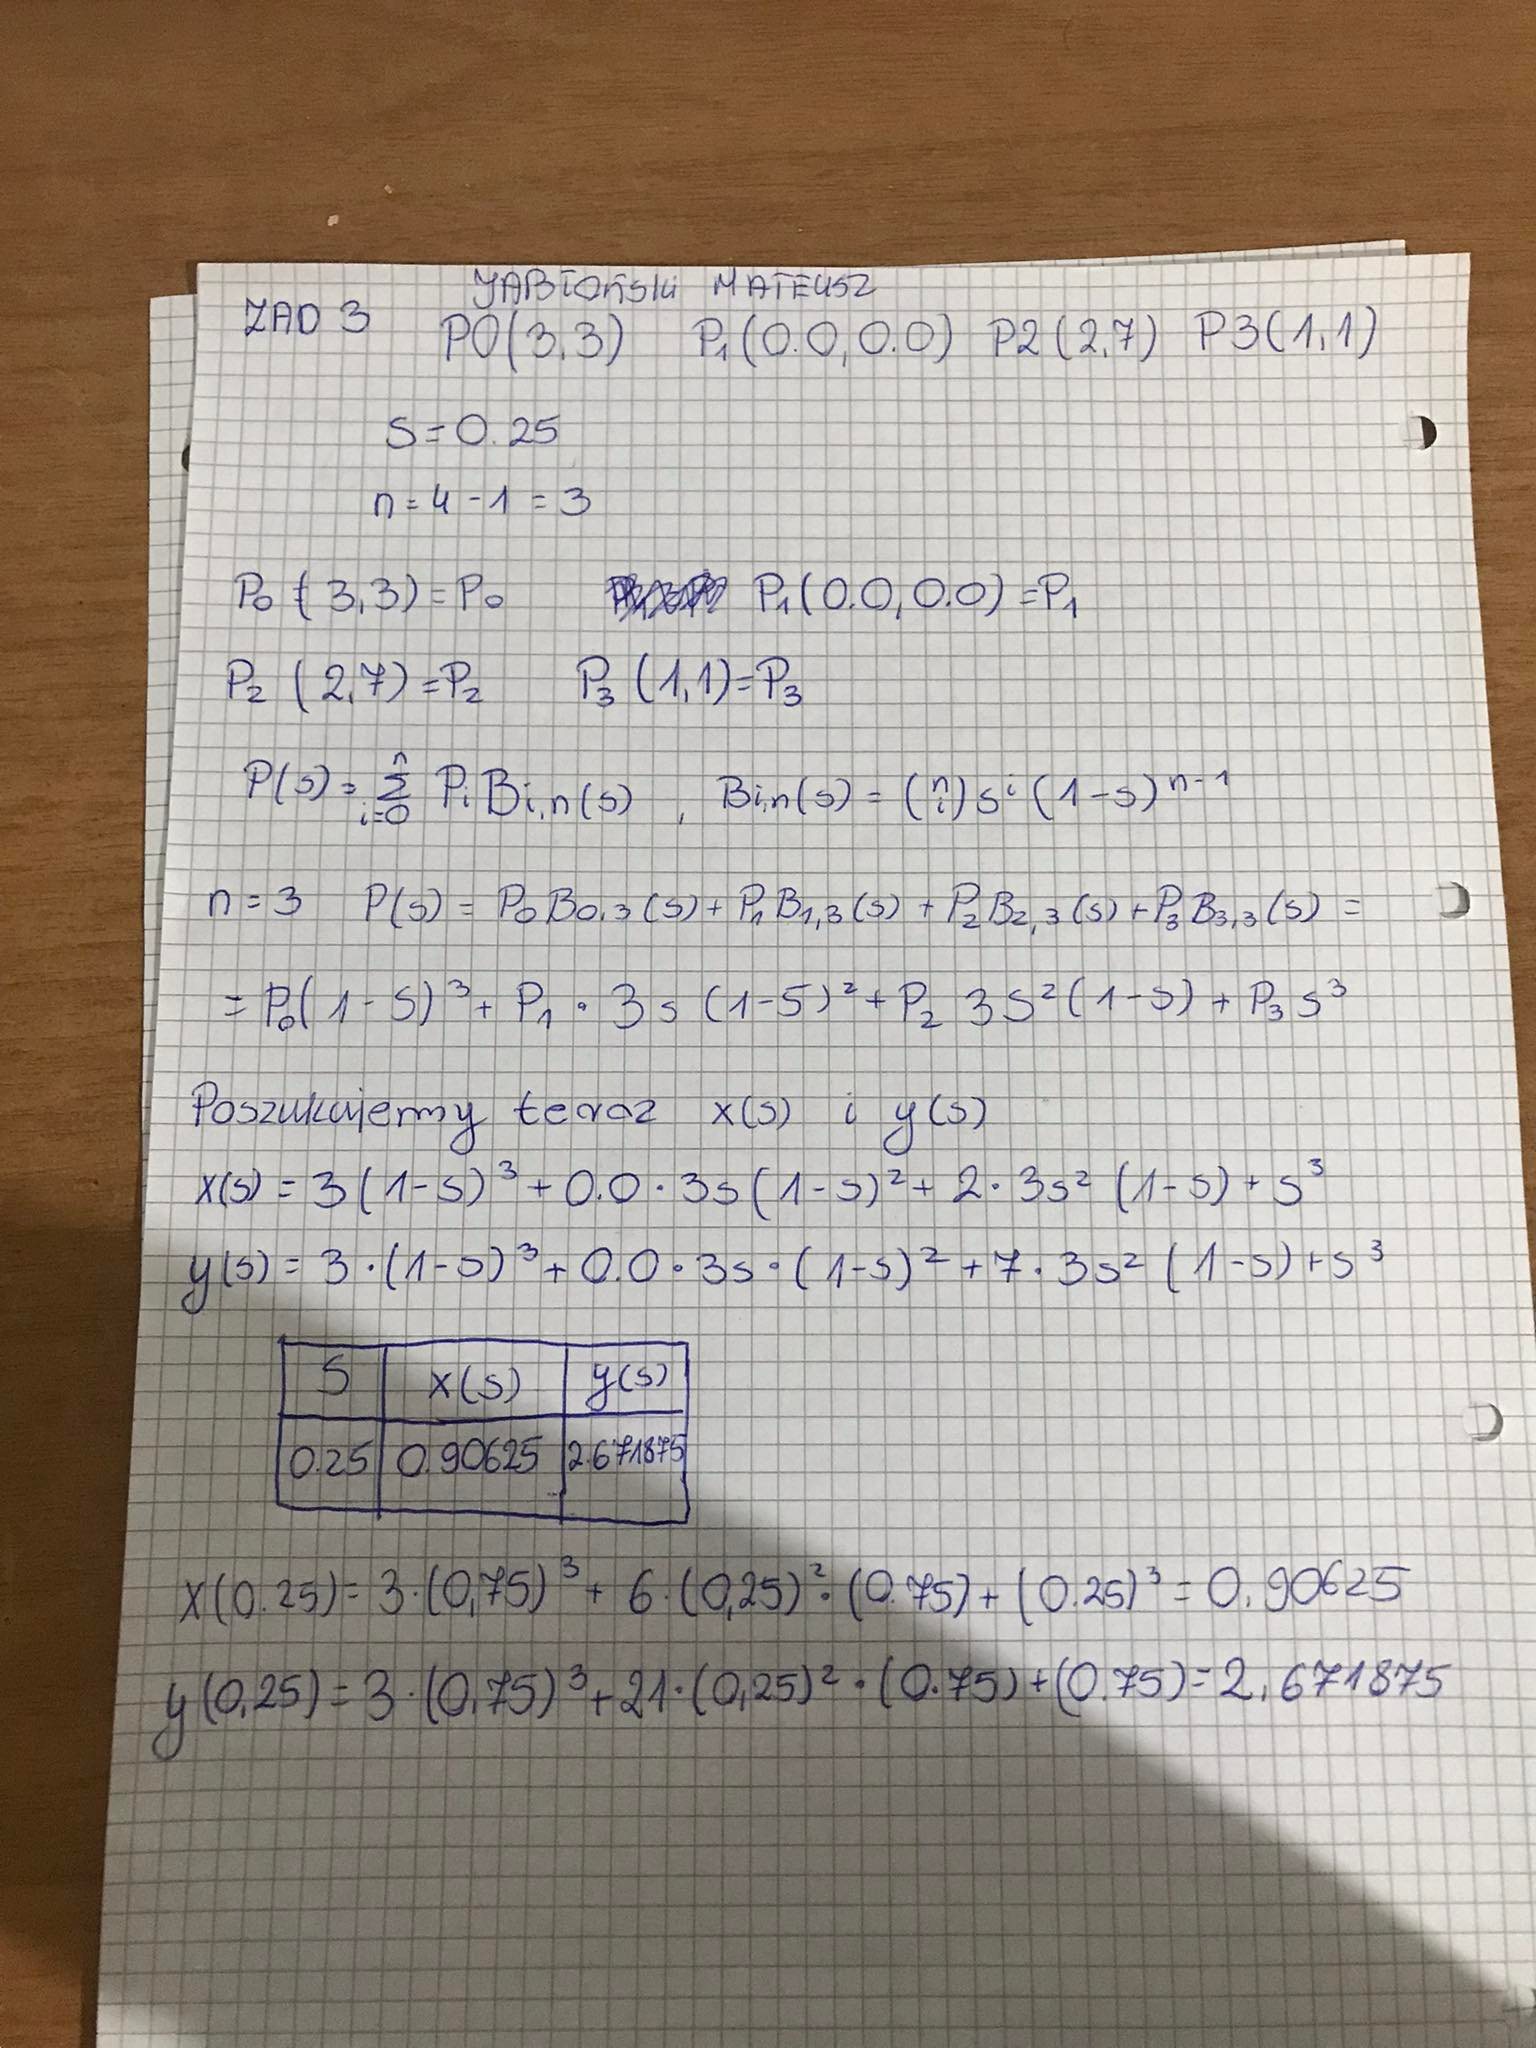 JABŁOŃSKI MATEUSZ
ZAD 3 P0(3,3) P₁(0.0,0.0) P2(2,7) P3(1,1)
S=0.25
n=4-1=3
P₀(3,3)=P₀ P₁(0.0,0.0)=P₁
P₂(2,7)=P₂ P₃(1,1)=P₃
P(s)=Σⁿᵢ₌₀ PᵢBᵢ,ₙ(s), Bi,n(s)=(ⁿᵢ)sⁱ(1-s)ⁿ⁻¹
n=3 P(s)=P₀B₀.₃(s)+P₁B₁,₃(s)+P₂B₂,₃(s)+P₃B₃,₃(s)=
=P₀(1-S)³+P₁·3s(1-S)²+P₂ 3S²(1-s)+P₃s³
Poszukujemy teraz x(s) i y(s)
x(s)=3(1-s)³+0.0·3s(1-s)²+2·3s²(1-s)+s³
y(s)=3·(1-s)³+0.0·3s·(1-s)²+7·3s²(1-s)+s³
S x(s) y(s)
0.25 0.90625 2.671875
x(0.25)=3·(0,75)³+6·(0,25)²·(0.75)+(0.25)³=0.90625
y(0,25)=3·(0,75)³+21·(0,25)²·(0.75)+(0.75)=2.671875